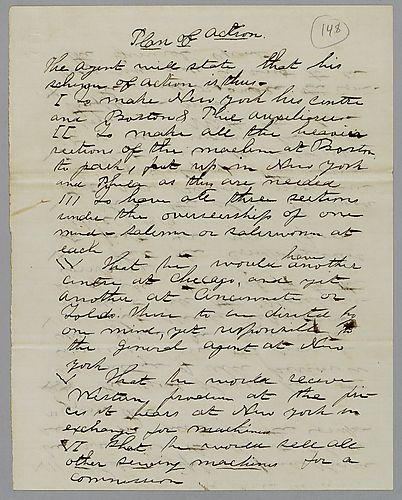 148
Plan of Action.
The Agent will state that his
scheme of action is thus -
I To make New York his centre
and Boston & Phie
II To make all the heavier
section of the machine at Boston
to pack, put up in New York
and as they are needed
III To have all three sections
under the overseership of one
mind - salesmen or saleswoman at
each
IV That he would have another
centre at Chicago, and yet
another at Cincinnate or
Toledo. These to be directed by
one mind, yet responsible to
the general agent at New
York
V That he would receive
Western produce at the pri-
ces it bears at New York in
exchange for machines
VI That he would sell all
other sewing machines for a
commission